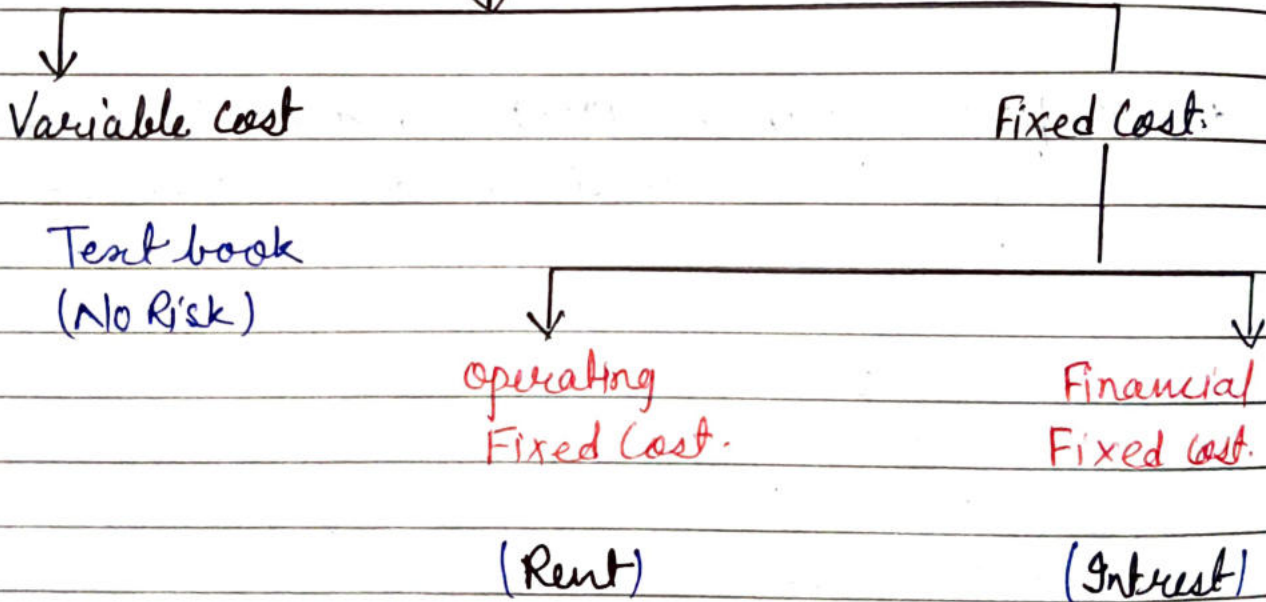 Variable Cost
Fixed Cost:
Text book
(No Risk)
operating
Fixed Cost.
Financial
Fixed cost.
(Rent)
(Intrest)